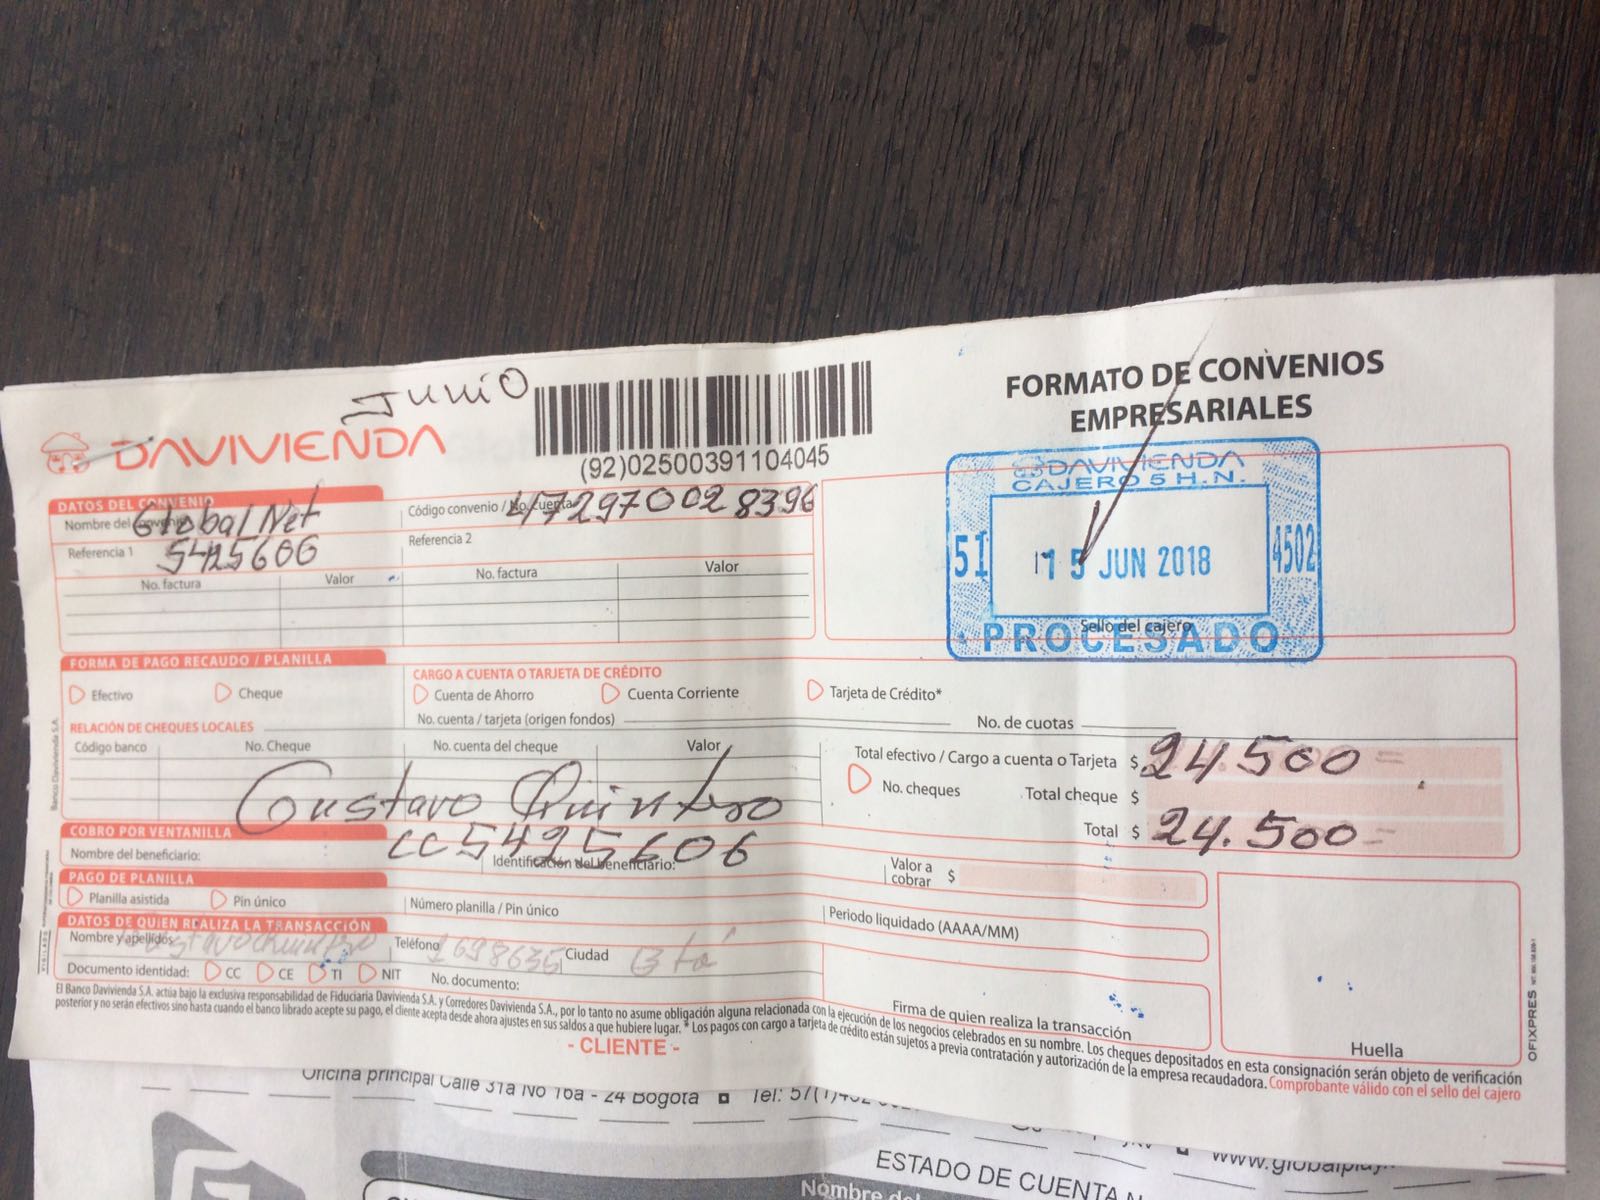 Junio
DAVIVIENDA
(92)02500391104045
FORMATO DE CONVENIOS
EMPRESARIALES
DATOS DEL CONVENIO
Nombre del convenio Global Net
Código convenio / No. Cuenta 472970028396
Referencia 1 5425606
Referencia 2
No. factura Valor No. factura Valor
DAVIVIENDA
CAJERO 5 H.N.
51 15 JUN 2018 4502
Sello del cajero
PROCESADO
FORMA DE PAGO RECAUDO / PLANILLA
Efectivo Cheque
CARGO A CUENTA O TARJETA DE CRÉDITO
Cuenta de Ahorro Cuenta Corriente Tarjeta de Crédito*
No. cuenta / tarjeta (origen fondos) No. de cuotas
RELACIÓN DE CHEQUES LOCALES
Código banco No. Cheque No. cuenta del cheque Valor
Total efectivo / Cargo a cuenta o Tarjeta $ 24.500=
No. cheques Total cheque $
Total $ 24.500=
Gustavo Quintero
CC 5425606
COBRO POR VENTANILLA
Nombre del beneficiario: Identificación del beneficiario:
Valor a cobrar $
PAGO DE PLANILLA
Planilla asistida Pin único Número planilla / Pin único
Periodo liquidado (AAAA/MM)
DATOS DE QUIEN REALIZA LA TRANSACCIÓN
Nombre y apellidos Gustavo Quintero Teléfono 1698635 Ciudad Btá
Documento identidad: CC CE TI NIT No. documento:
Firma de quien realiza la transacción
Huella
El Banco Davivienda S.A. actúa bajo la exclusiva responsabilidad de Fiduciaria Davivienda S.A. y Corredores Davivienda S.A., por lo tanto no asume obligación alguna relacionada con la ejecución de los negocios celebrados en su nombre. Los cheques depositados en esta consignación serán objeto de verificación
posterior y no serán efectivos sino hasta cuando el banco librado acepte su pago, el cliente acepta desde ahora ajustes en sus saldos a que hubiere lugar. * Los pagos con cargo a tarjeta de crédito están sujetos a previa contratación y autorización de la empresa recaudadora. Comprobante válido con el sello del cajero
- CLIENTE -
Banco Davivienda S.A.
VIGILADO
OFIXPRES
Oficina principal Calle 31a No 16a - 24 Bogotá Tel: 57(1)
ESTADO DE CUENTA
Nombre